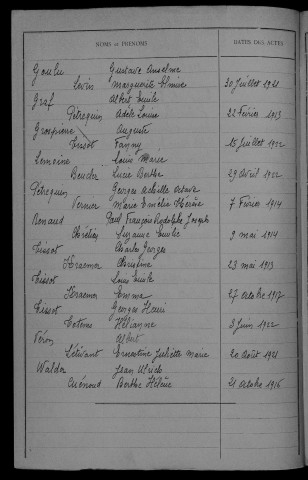 NOMS ET PRÉNOMS DATES DES ACTES
Goulu Gustave Anselme
Marguerite 30 Juillet 1921
Graf Albert Emile
Pétrequin Adèle Louise 22 Février 1913
Grospierre Auguste
Tissot Fanny 15 Juillet 1922
Lemoine Louis Marie
Bender Lucie Berthe 29 Avril 1922
Pétrequin Georges Achille Octave
Vernier Marie Emélie 7 Février 1914
Renaud Paul François Rodolphe Joseph
Chrétien Suzanne Emilie 9 mai 1914
Tissot Charles Georges
Kraemer Christine 23 mai 1913
Tissot Louis Emile
Kraemer Emma 27 octobre 1917
Tissot Georges Henri
Hélianne 3 Juin 1922
Véron Albert
Létivant Ernestine Juliette Marie 20 Août 1921
Walder Jean Ulrich
Quénoud Berthe Hélène 21 Octobre 1916